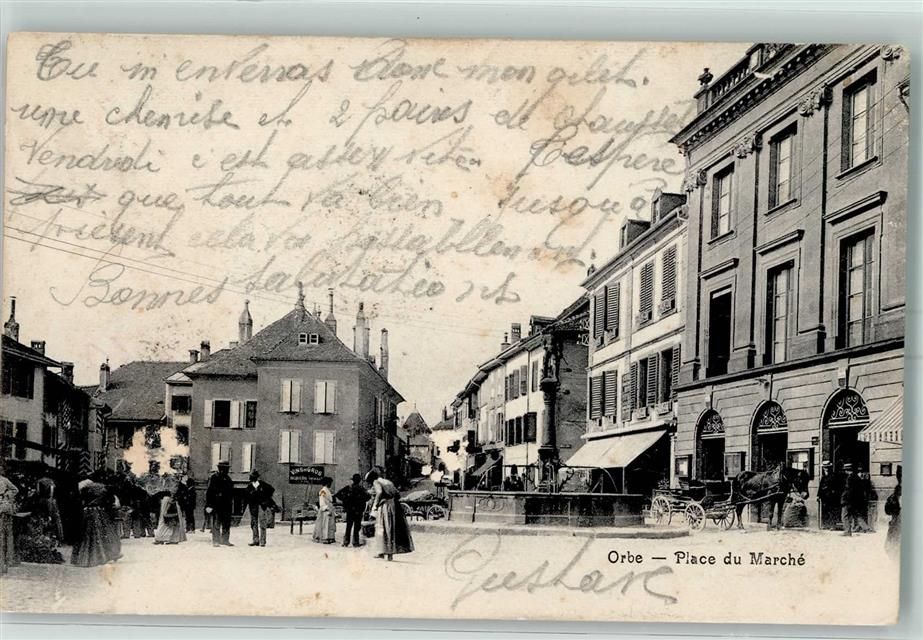 Tu m enverras donc mon gilet.
une chemise et 2 pairs de chaussette
Vendredi c est assez vite J espère
que tout va bien jusqu à
présent cela va
Bonnes salutations
VINS EN GROS
Orbe — Place du Marché
Gustave